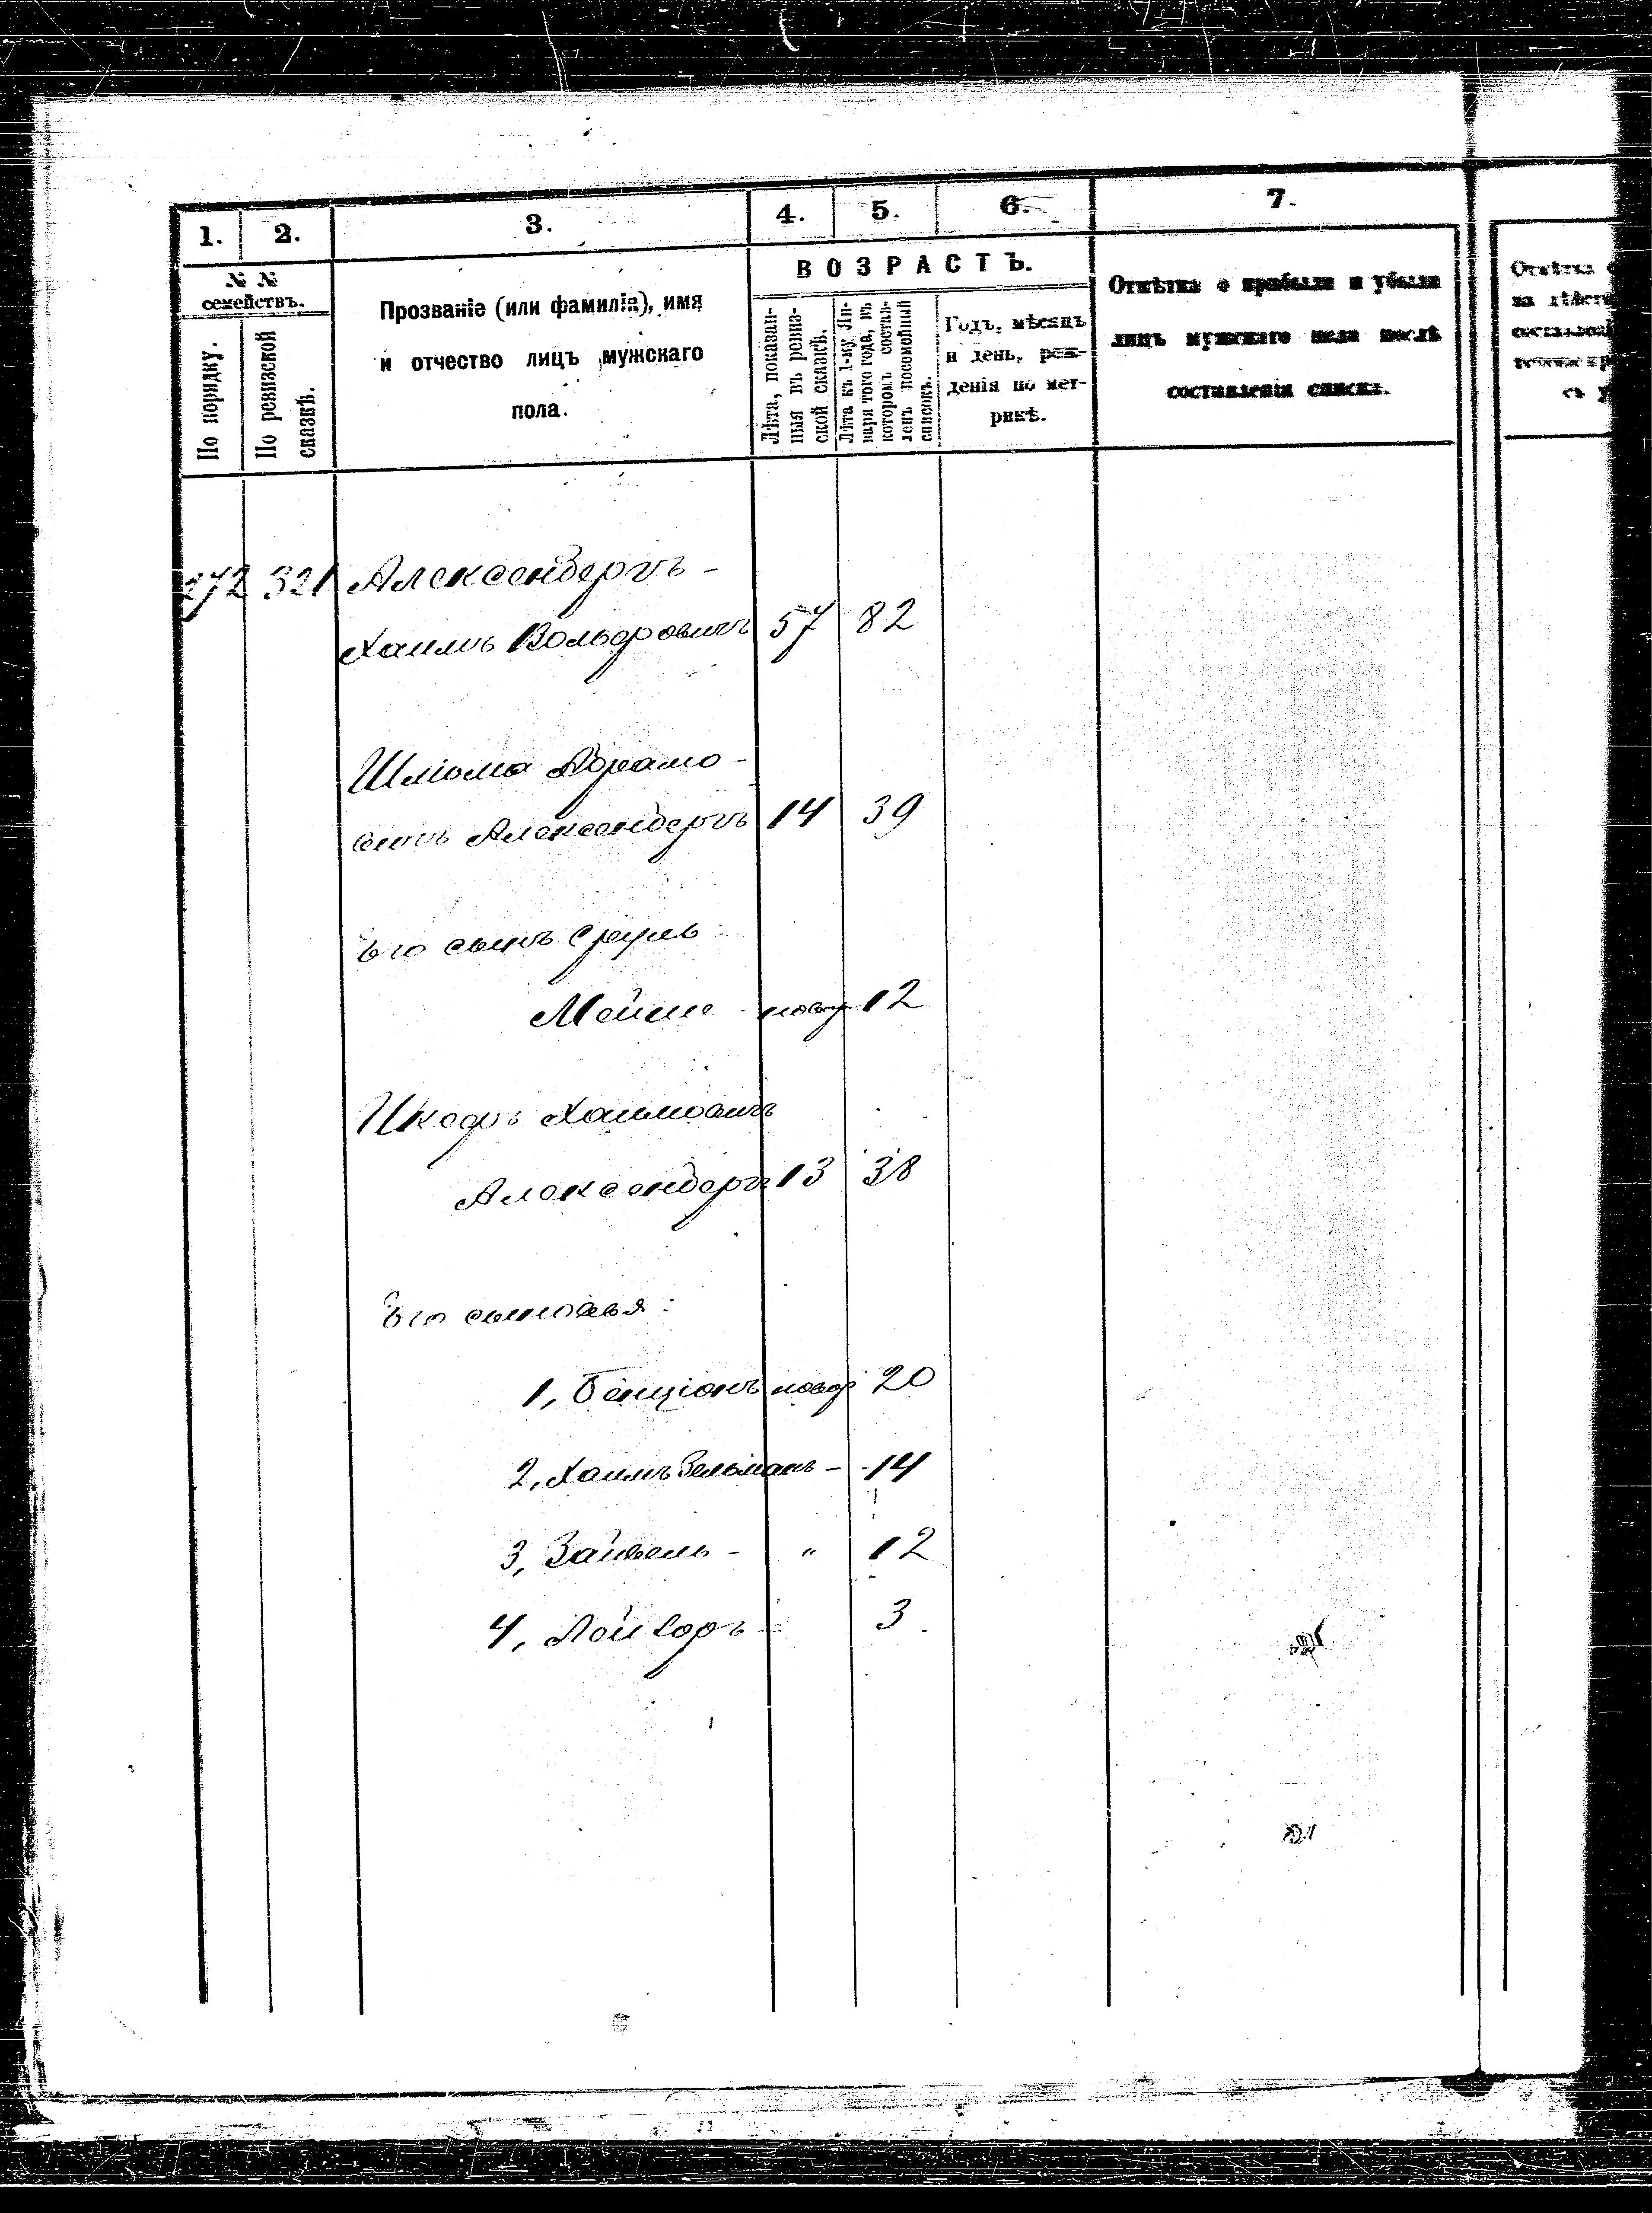 1. 2. 3. 4. 5. 6. 7.
№ №
семействъ.
По порядку.
По ревизской
сказкѣ.
Прозваніе (или фамилія), имя
и отчество лицъ мужскаго
пола.
ВОЗРАСТЪ.
Лѣта, показан-
ныя въ ревиз-
ской сказкѣ.
Лѣта къ 1-му Ян-
варя того года, въ
которомъ состав-
ленъ посемейный
списокъ.
Годъ, мѣсяцъ
и день, рож-
денія по мет-
рикѣ.
Отмѣтка о прибыли и убыли
лицъ мужскаго пола послѣ
составленія списка.
Отмѣтка
на
272 321 Александеръ -
Хаимъ Вольфовичъ 57 82
Шліома Абрамо-
вичъ Александеръ 14 39
Его сынъ Сруль
Мейше новор 12
Ицкофъ Хаимовичъ
Александеръ 13 38
Его сыновья:
1, Бенціонъ новор 20
2, Хаимъ Зельманъ - 14
3, Зайвель - " 12
4, Лейзоръ 3